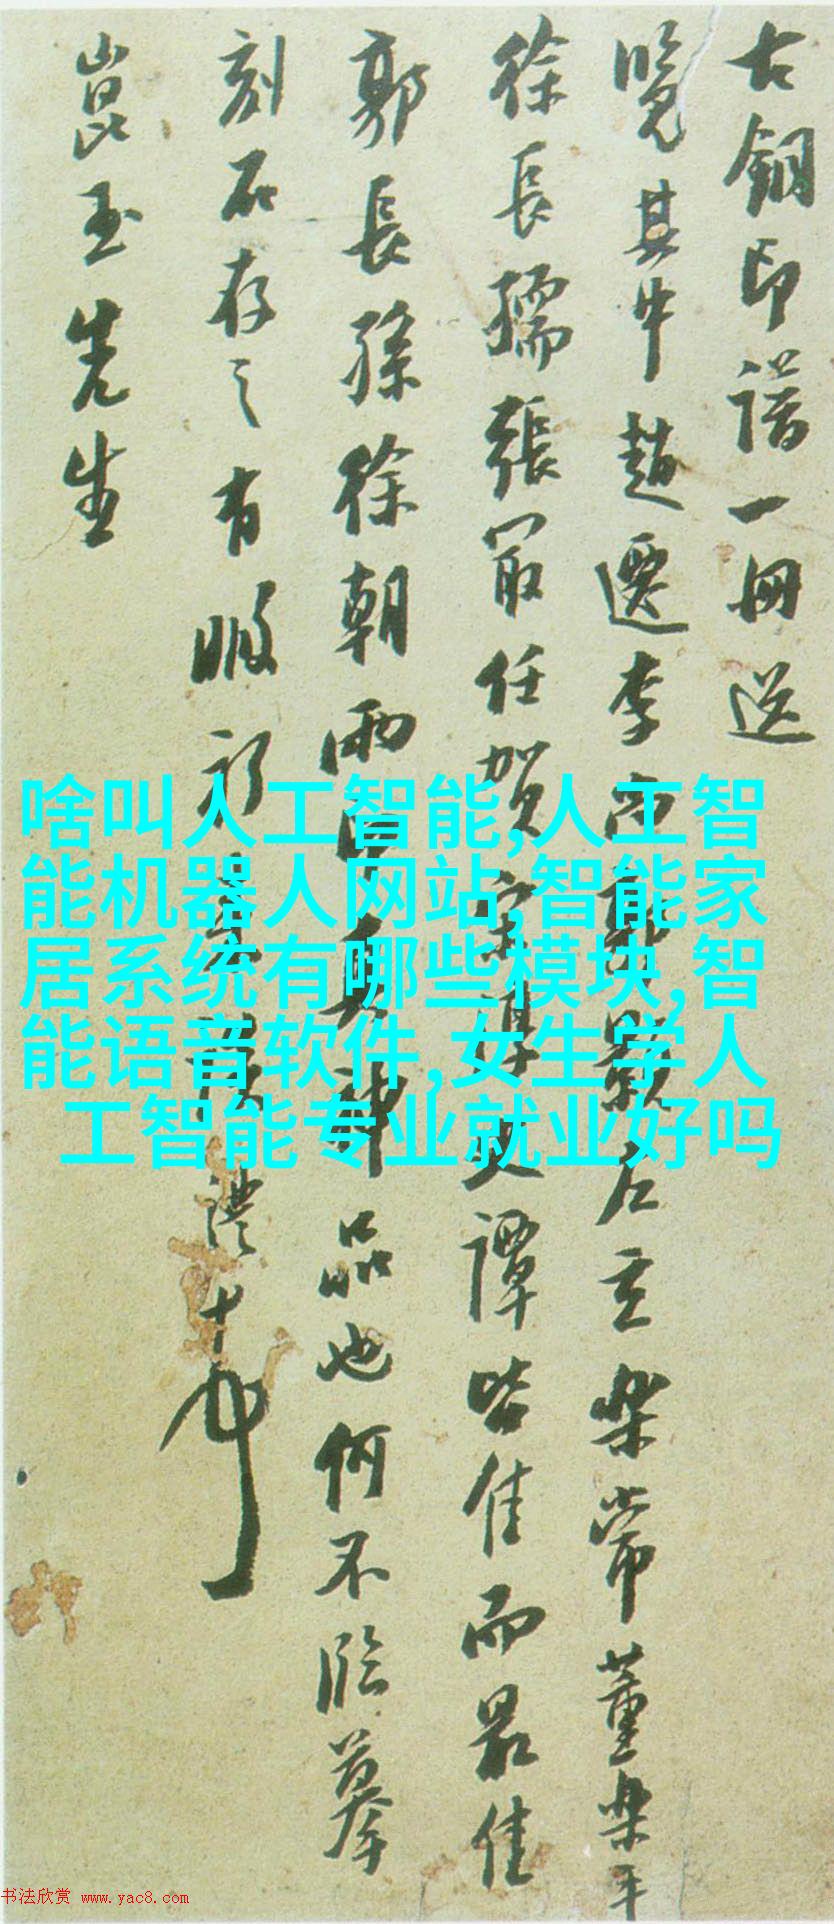 古銅印譜一冊送
覽其中趙遷李尚郭
左立樂常董樂平
徐長孺張冣任賀
譚皆佳而最佳
郭長孫徐朝兩
真神品也何不臨摹
刻石存之有暇
十
崑玉先生
啥叫人工智能,人工智
能机器人网站,智能家
居系统有哪些模块,智
能语音软件,女生学人
工智能专业就业好吗
书法欣赏 www.yac8.com